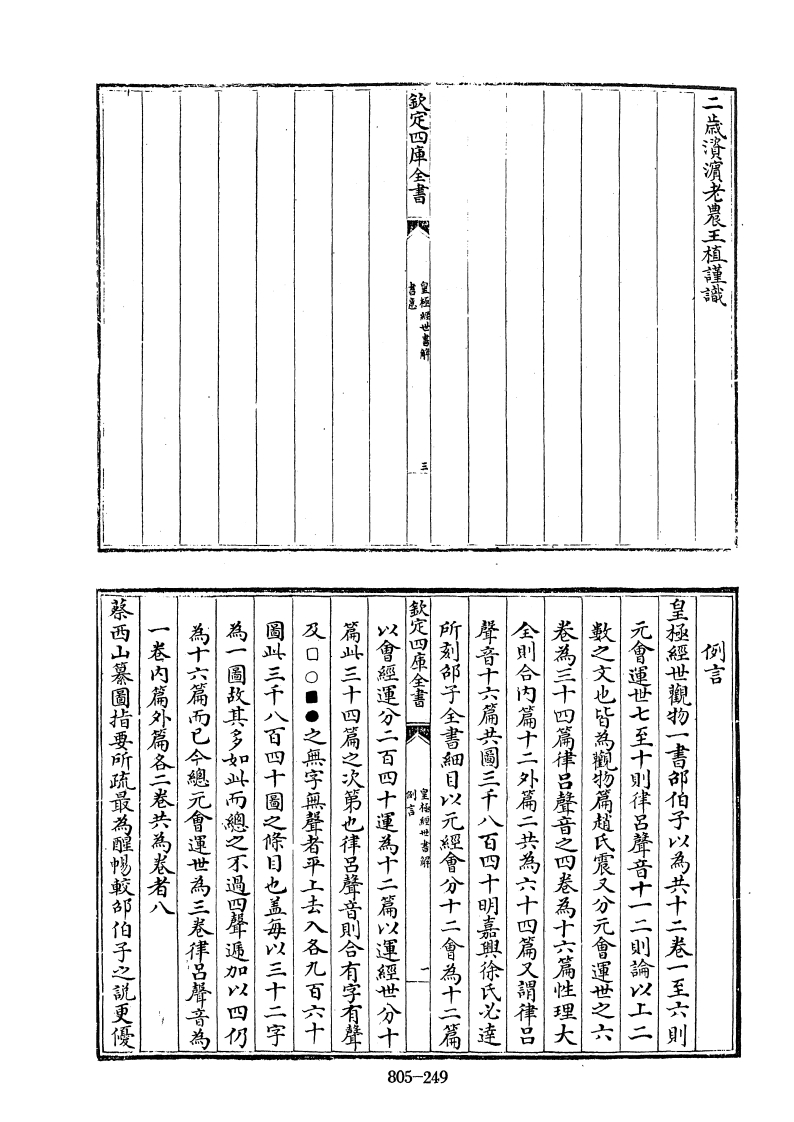 二歳濱濱老農王植謹識
欽定四庫全書
皇極經世書解
書意
三
例言
皇極經世觀物一書邵伯子以為共十二卷一至六則
元會運世七至十則律呂聲音十一二則論以上二
數之文也皆為觀物篇趙氏震又分元會運世之六
卷為三十四篇律呂聲音之四卷為十六篇性理大
全則合内篇十二外篇二共為六十四篇又謂律呂
聲音十六篇共圖三千八百四十明嘉興徐氏必達
所刻邵子全書細目以元經會分十二會為十二篇
欽定四庫全書
皇極經世書解
例言
一
以會經運分二百四十運為十二篇以運經世分十
篇此三十四篇之次第也律呂聲音則合有字有聲
及□○■●之無字無聲者平上去入各九百六十
圖此三千八百四十圖之條目也盖每以三十二字
為一圖故其多如此而總之不過四聲遞加以四仍
為十六篇而已今總元會運世為三卷律呂聲音為
一卷内篇外篇各二卷共為卷者八
蔡西山纂圖指要所疏最為醒暢較邵伯子之說更優
805-249